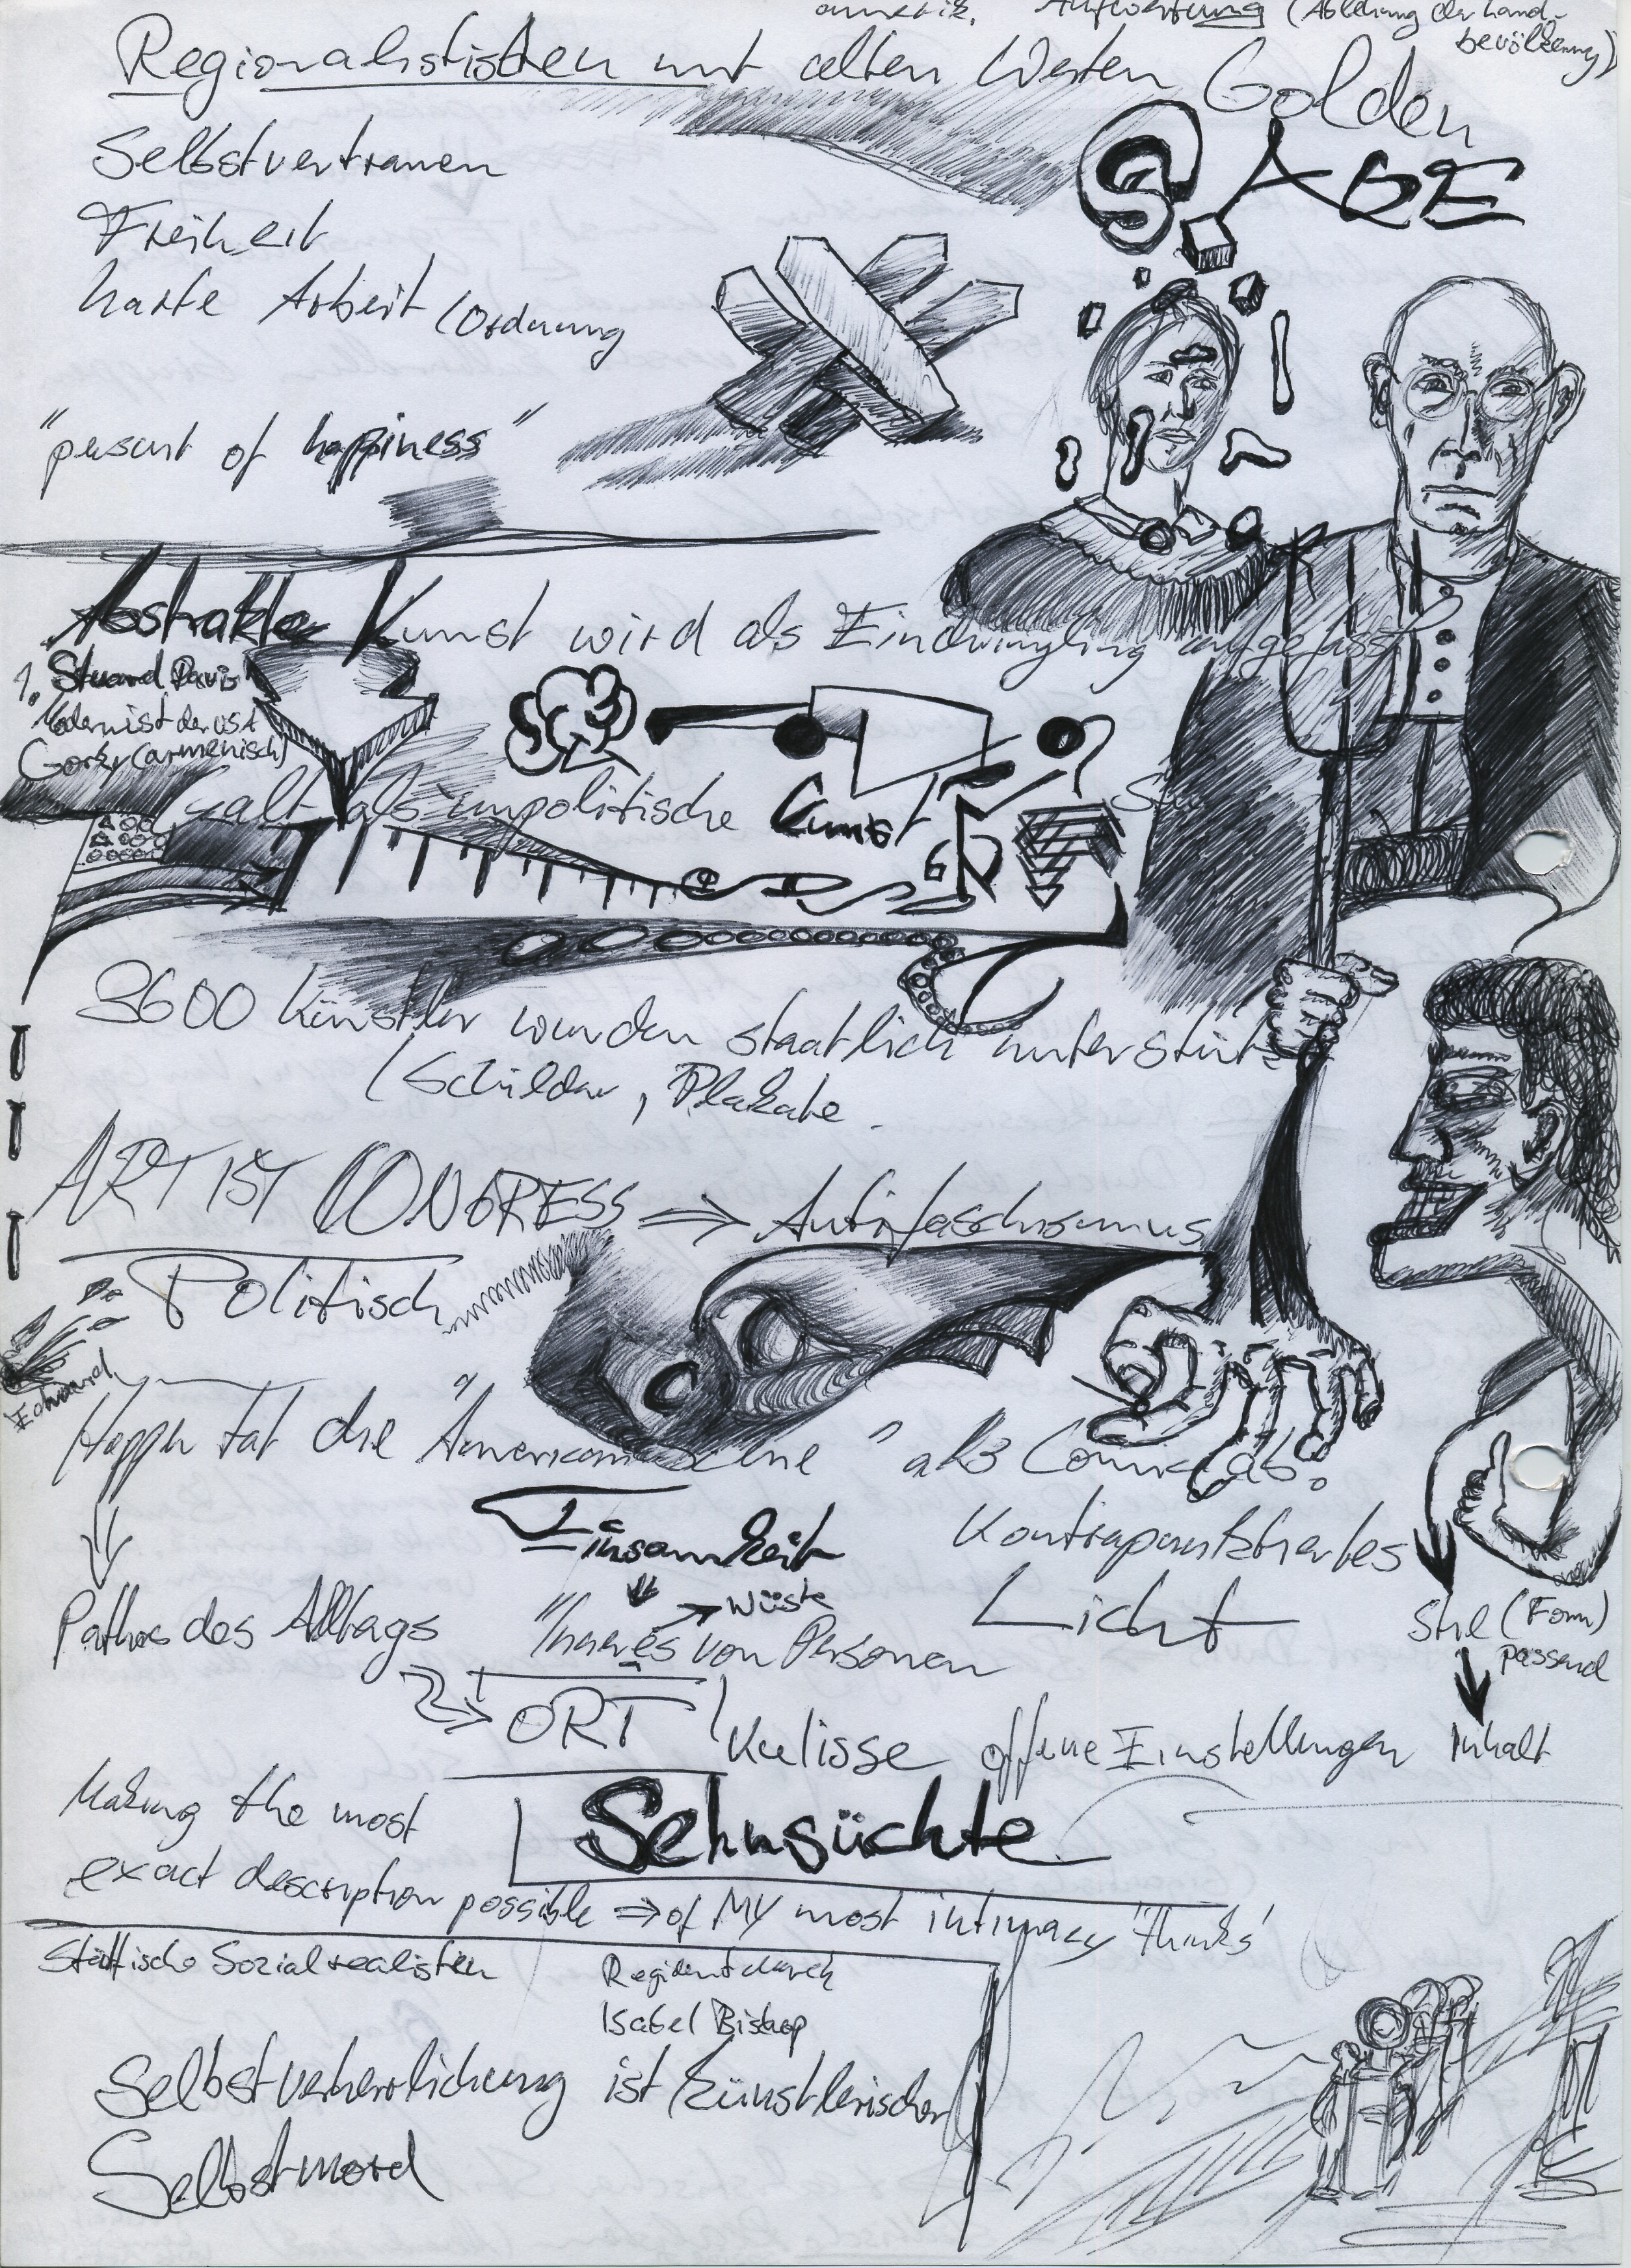 Aufwertung (Ablehung der Land-
bevölkerung)
Regionalistisken mit alten Westen Golden
AGE
Selbstvertrauen
Freiheit
harte Arbeit (Ordnung
"persunt of happiness"
Abstrakte Kunst wird als Eindringling aufgefasst
1. Stuard Davis
Modernist der USA
Gorky (armenisch)
galt als unpolitische Kunst
3600 Künstler wurden staatlich unterstützt
(Schilder, Plakate.
ARTIST CONGRESS ⇒ Antifaschismus
Politisch
Edward
Hopper tat die "American Scene" als Comic ab.
Einsamkeit
Kontrapunktiertes
Licht
Pathos des Alltags
"Inneres von Personen
→ Wüste
Stil (Form)
passend
Inhalt
ORT
Kulisse offene Einstellungen
Making the most
exact description possible ⇒ of MY most intimacy 'thinks'
Sehnsüchte
Stättische Sozialrealisten
Isabel Bishop
Selbstverherrlichung ist künstlerischer
Selbstmord